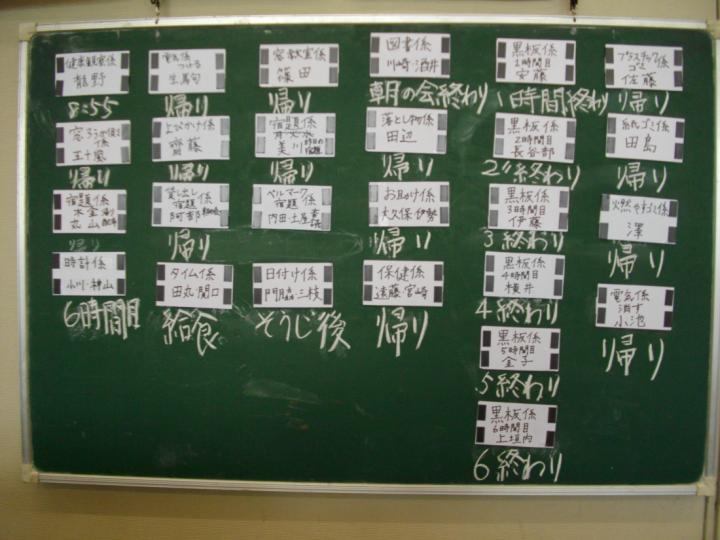 健康観察係
龍野
8:55
電気係
つける
生馬句
帰り
窓教室係
篠田
帰り
図書係
川崎・酒井
朝の会終わり
黒板係
1時間目
安藤
1時間終わり
プラスチック
ゴミ
佐藤
帰り
窓ろうか側
係
五十嵐
帰り
よびかけ係
齋藤
帰り
宿題係
美川
帰り
落とし物係
田辺
帰り
黒板係
2時間目
長谷部
2〃終わり
紙ゴミ係
田島
帰り
宿題係
木金
丸山
帰り
貸し出し
宿題係
阿部
帰り
ベルマーク
宿題係
内田・土屋
お助け係
大久保・伊勢
帰り
黒板係
3時間目
伊藤
3終わり
燃やすゴミ係
澤
帰り
時計係
小川・神山
6時間目
タイム係
田丸・関口
給食
日付け係
門脇・三枝
そうじ後
保健係
遠藤・宮崎
帰り
黒板係
4時間目
横井
4終わり
電気係
消す
小池
帰り
黒板係
5時間目
金子
5終わり
黒板係
6時間目
上垣内
6終わり